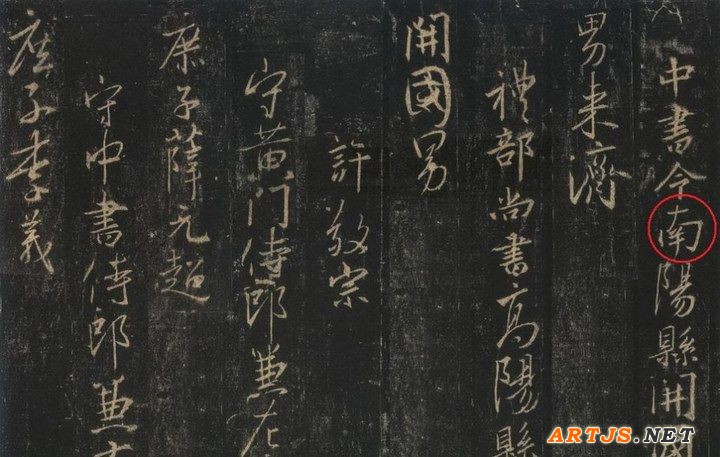 中書令南陽縣開國
男来濟
禮部尚書高陽縣
開國男
許敬宗
守黄門侍郎兼左
庶子薛元超
守中書侍郎兼右
庶子李義
ARTJS.NET